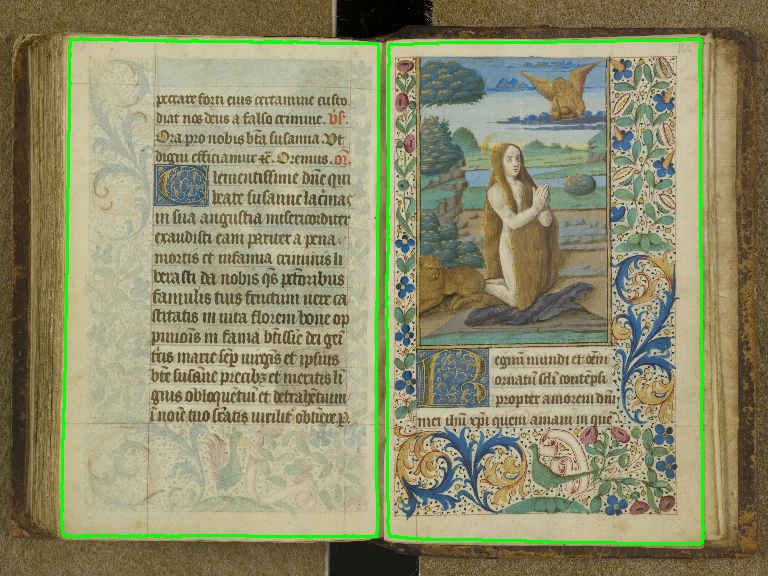 peccare forti eius certamine custo
diat nos deus a falso crimine. v̄s.
Ora pro nobis bt̄a susanna. Vt
digni efficiamur ⁊c. Oremus. or̄.
Clementissime dn̄e qui
beate susanne lacrimas
in sua angustia misericorditer
exaudisti eam pariter a pena
mortis et infamia criminis li
berasti da nobis qs̄ pctōribus
famulis tuis fructum vere ca
stitatis in vita florem bone op
pinionis in fama
marie sēp virgīs et ipsius
bte susāne precibȝ et meritis li
gnis obloquētiū et detrahentium
ī noīe tuo obtinere p.
Regnū mundi et oēm
ornatū sēli contēpsi
propter amorem dn̄i
mei ihū xp̄i quem amaui in quē